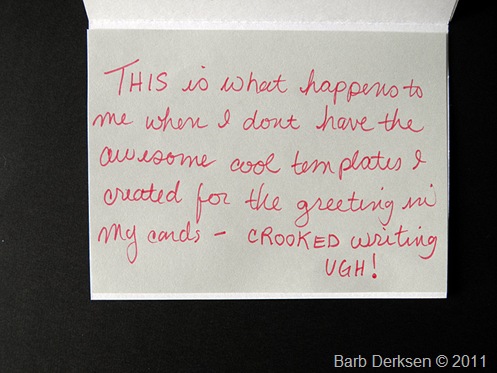 THIS is what happens to
me when I dont have the
awesome cool templates I
created for the greeting in
my cards - CROOKED writing
UGH!
Barb Derksen © 2011